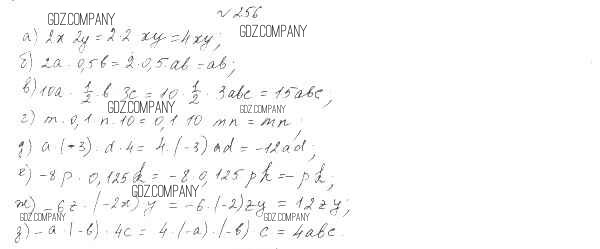 № 256
GDZ.COMPANY
а) 2x 2y = 2·2 xy = 4xy;
GDZ.COMPANY
б) 2a · 0,5b = 2·0,5·ab = ab;
в) 10a · 1/2 · b 3c = 10 · 1/2 · 3abc = 15abc;
GDZ.COMPANY
GDZ.COMPANY
г) m·0,1 n·10 = 0,1 10 mn = mn;
д) a·(-3)·d·4 = 4·(-3) ad = -12ad;
е) -8p · 0,125k = -8·0,125pk = -pk;
GDZ.COMPANY
ж) -6z·(-2x) y = -6·(-2)zy = 12zy;
GDZ.COMPANY
GDZ.COMPANY
з) -a·(-b)·4c = 4·(-a)·(-b) c = 4abc.